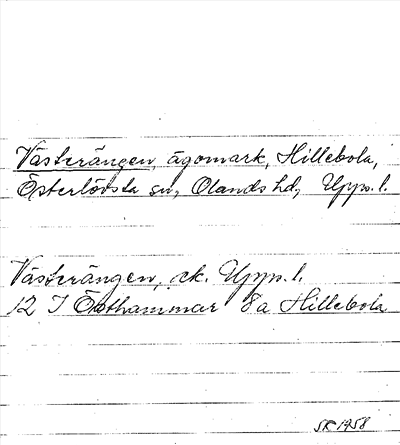 Västerängen, ägomark, Hillebola,
Österlövsta sn, Olands hd, Upps. l.
Västerängen, ek. Upps. l.
12 I Östhammar 8a Hillebola
SR 1958